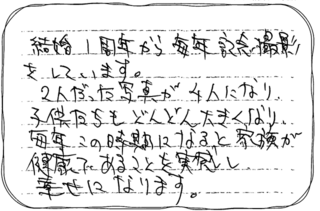 結婚1周年から毎年記念撮影
をしています。
2人だった写真が4人になり、
子供たちもどんどん大きくなり、
毎年この時期になると家族が
健康であることを実感し
幸せになります。